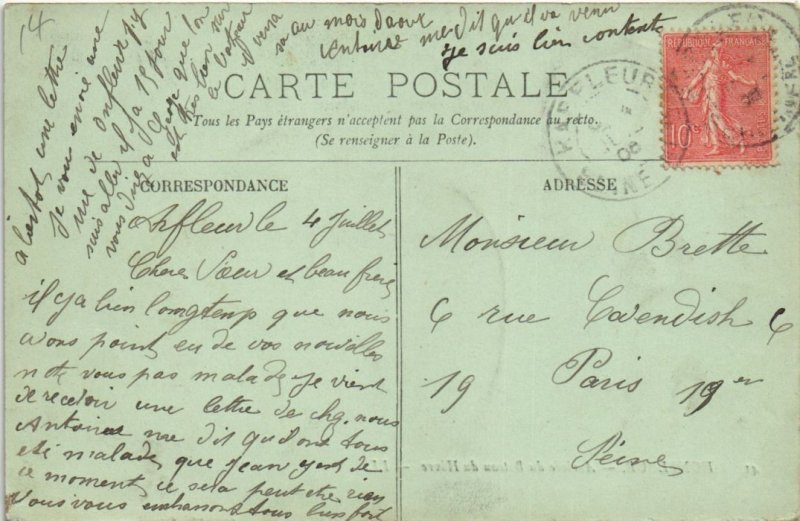 CARTE POSTALE
Tous les Pays étrangers n'acceptent pas la Correspondance au recto.
(Se renseigner à la Poste).
CORRESPONDANCE
ADRESSE
REPUBLIQUE FRANÇAISE
10
HARFLEUR
Arfleur le 4 Juillet
Chere Soeur et beau frere
il y a bien longtemp que nous
avons point eu de vos nouvelles
note vous pas malade je vient
de recevoir une lettre de chez nous
Antoine me dit qu'il ont tous
eté malade que Jean
ce moment, ce sera peut etre rien
Nous vous embrassons tous bien fort
a bientot une lettre
je vous envoie une
vue de Onfleur j'y
suis allé il y a 15 jour
vous
que l'on
est tres bien sur
le bateau
il viena
au mois d'aout
Antoine me dit qu'il va venir
je suis bien contente
Monsieur Brette
6 rue Cavendish 6
19 Paris 19er
Seine